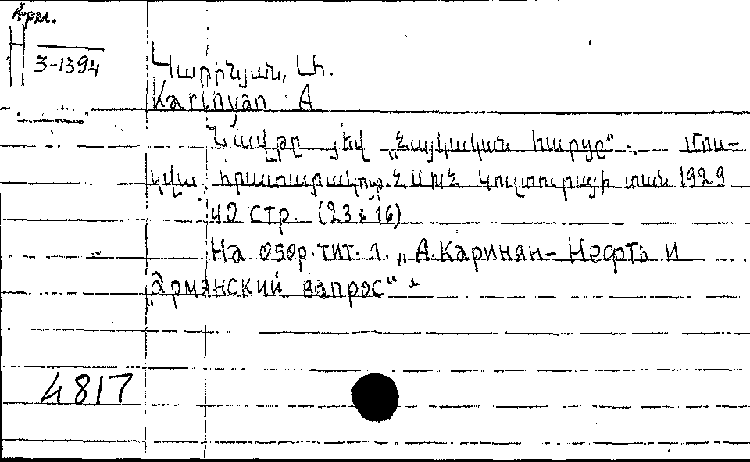 Н
3-1394
Կարինյան, Ա.
Karinyan A
Նավթը յեվ „Հայկական հարցը“. Մոս-
կվա, հրատարակութ. ՀՍԽՀ Կուլտուրայի տան 1929
40 стр. (23 x 16)
На обор. тит. л. „А. Каринян - Нефть и
армянский вапрос“.
4817